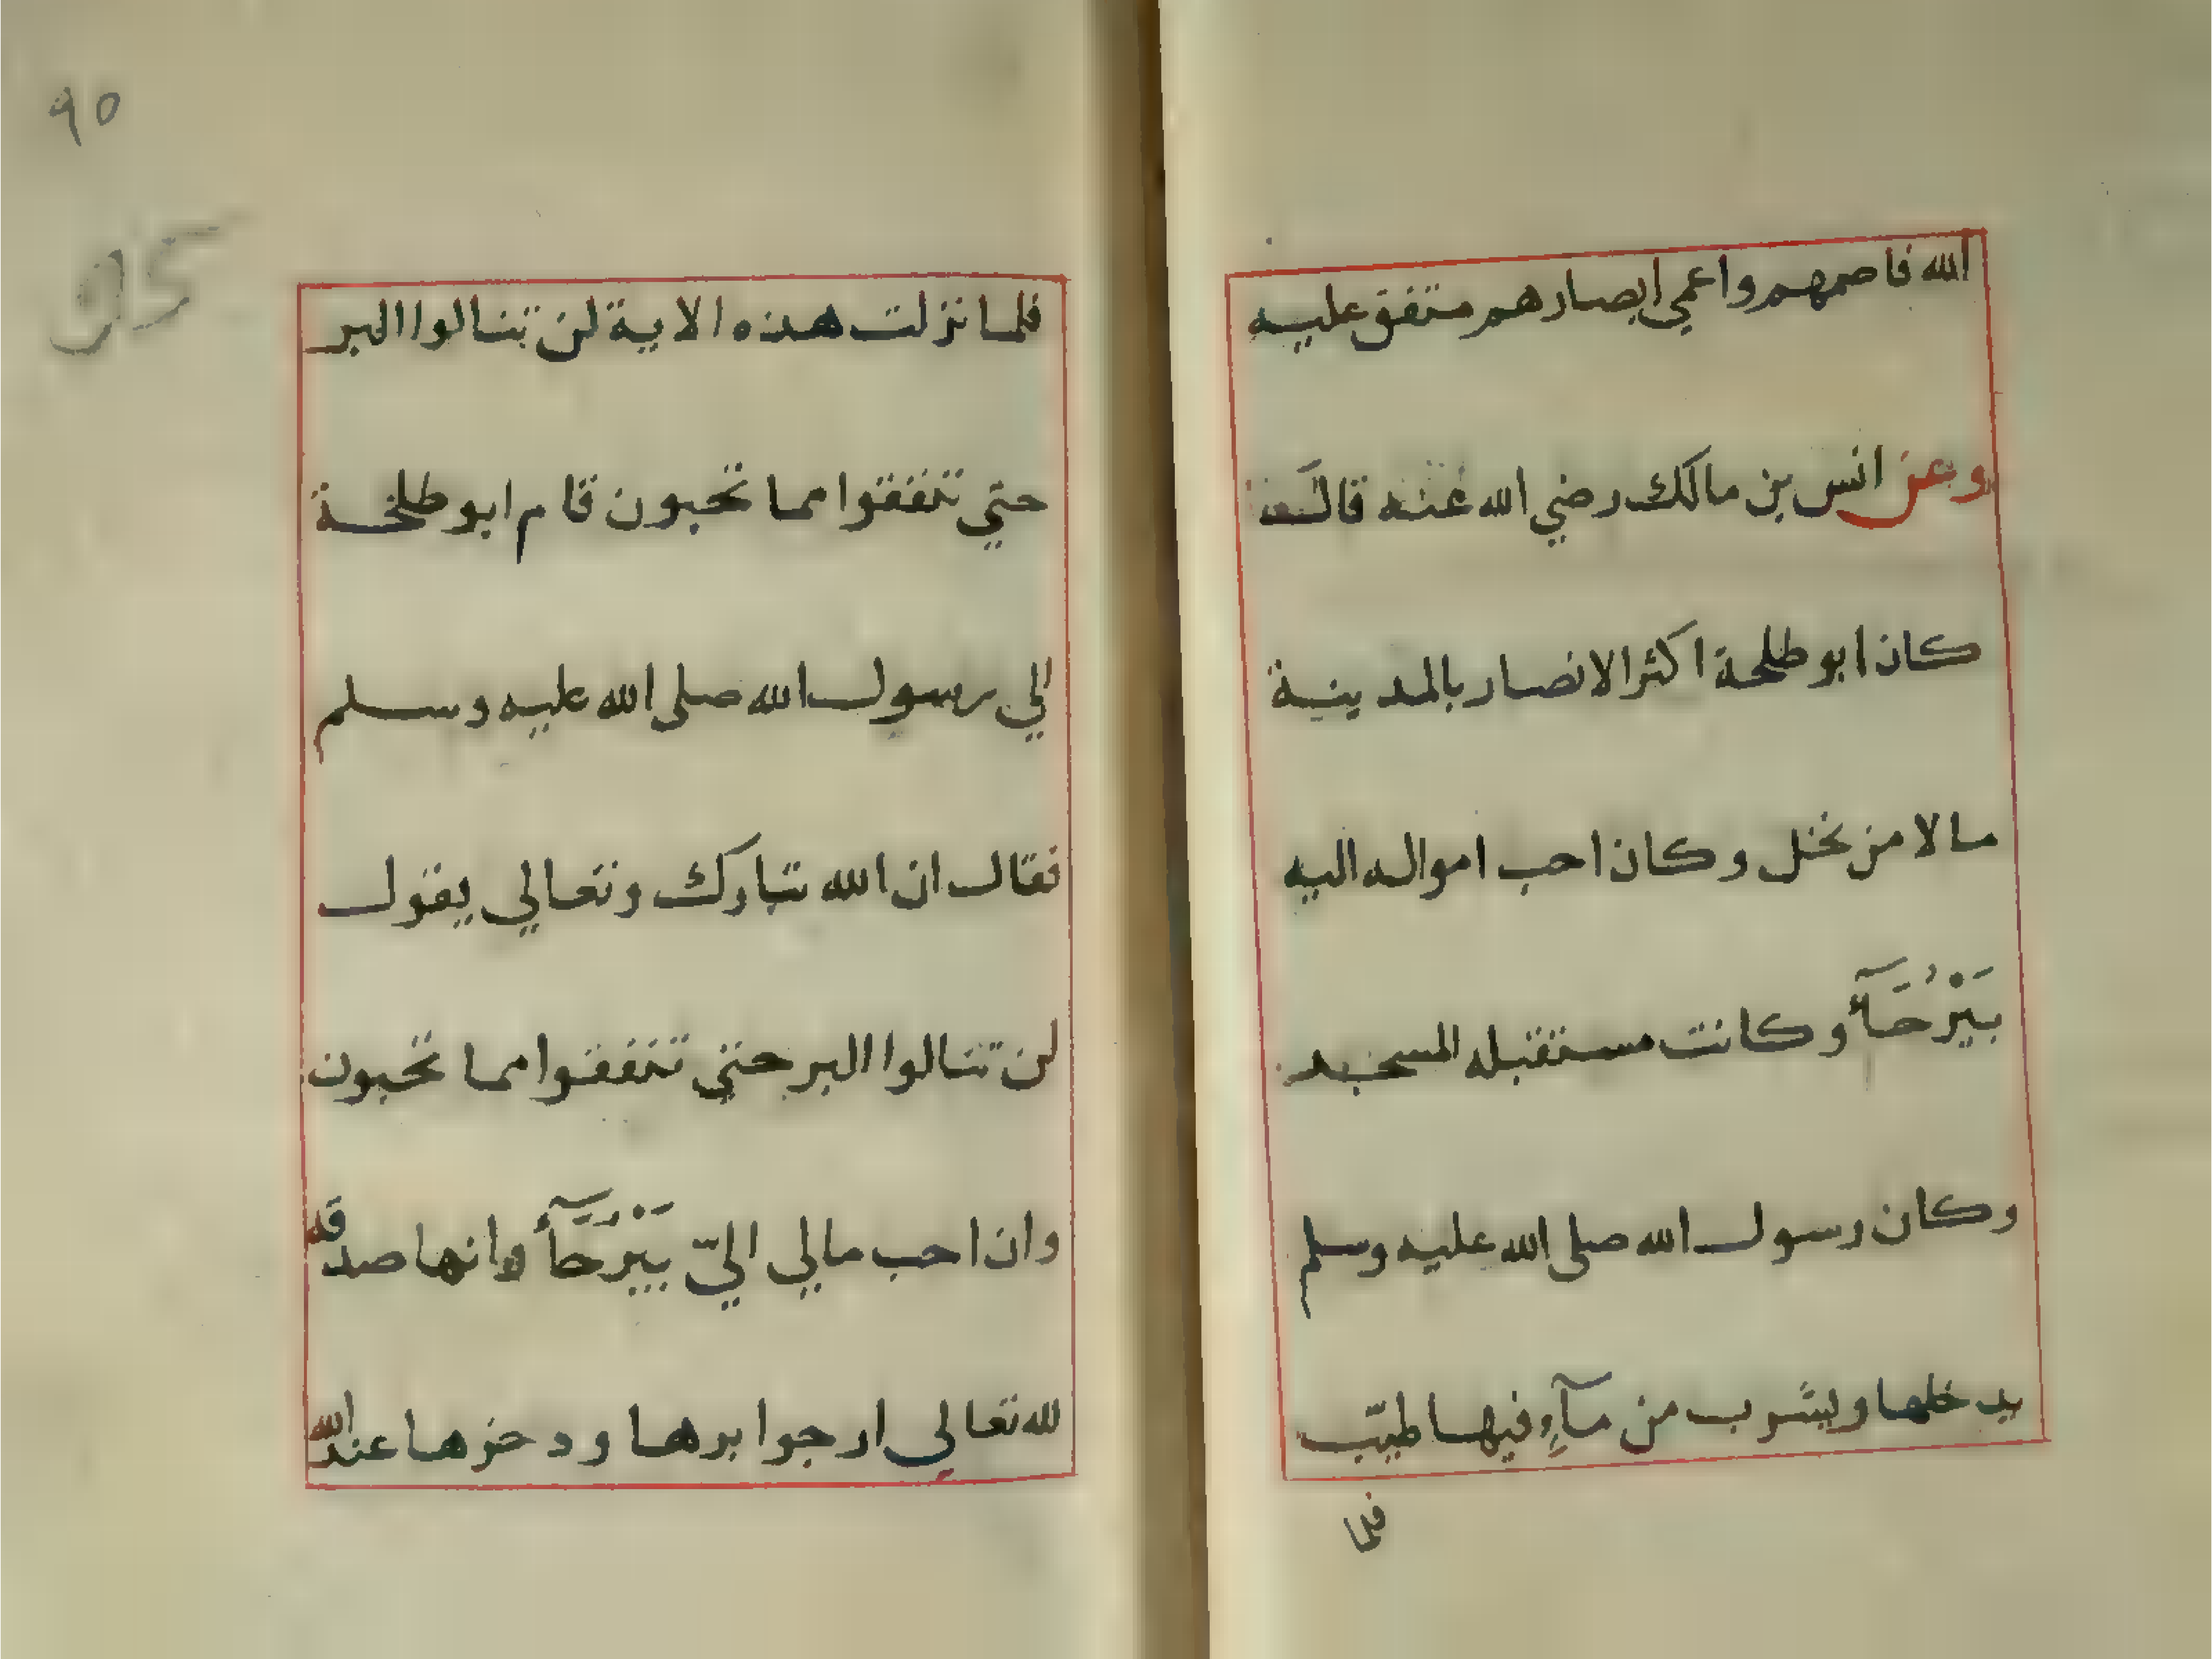 الله فاصمهم واعمي ابصارهم متفق عليه
وعن انس بن مالك رضي الله عنه قال
كان ابو طلحة اكثر الانصار بالمدينة
مالا من نخل وكان احب امواله اليه
بَيْرُحَآءَ وكانت مستقبله المسجد
وكان رسول الله صلى الله عليه وسلم
يدخلها ويشرب من مآءٍ فيها طيّب
فلما
٩٥
95
فلما نزلت هذه الاية لن تنالوا البر
حتي تنفقوا مما تحبون قام ابو طلحة
الي رسول الله صلى الله عليه وسلم
فقال ان الله تبارك وتعالي يقول
لن تنالوا البر حتي تنفقوا مما تحبون
وان احب مالي اليّ بَيْرُحَآءَ وانها صدقه
لله تعالي ارجوا برها ودخرها عند الله